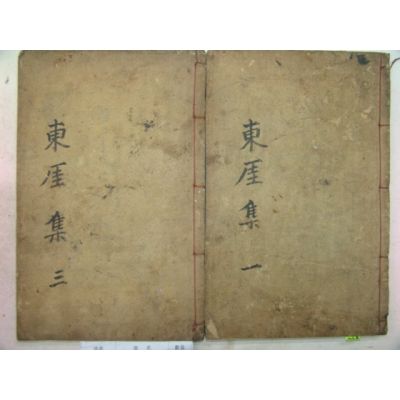 東厓集 一
東厓集 三